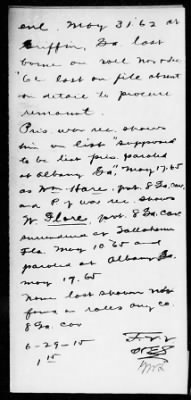 enl. May 31/62 at
Griffin, Ga last
borne on roll Nov & Dec
'62 last on file absent
on detail to procure
remount.
Pris. war rec. shows
him on list "supposed
to be list pris. paroled
at Albany Ga" May 17.65
as Wm Hare. prvt. 8 Ga. cav.
and P of war rec. shows
W. Flare. prvt. 8 Ga. cav
surrendered at Tallahassee
Fla. May 10 65 and
paroled at Albany Ga.
May 19. 65
name last shown not
found on rolls any co.
8 Ga. cav
6-29-15
1 15